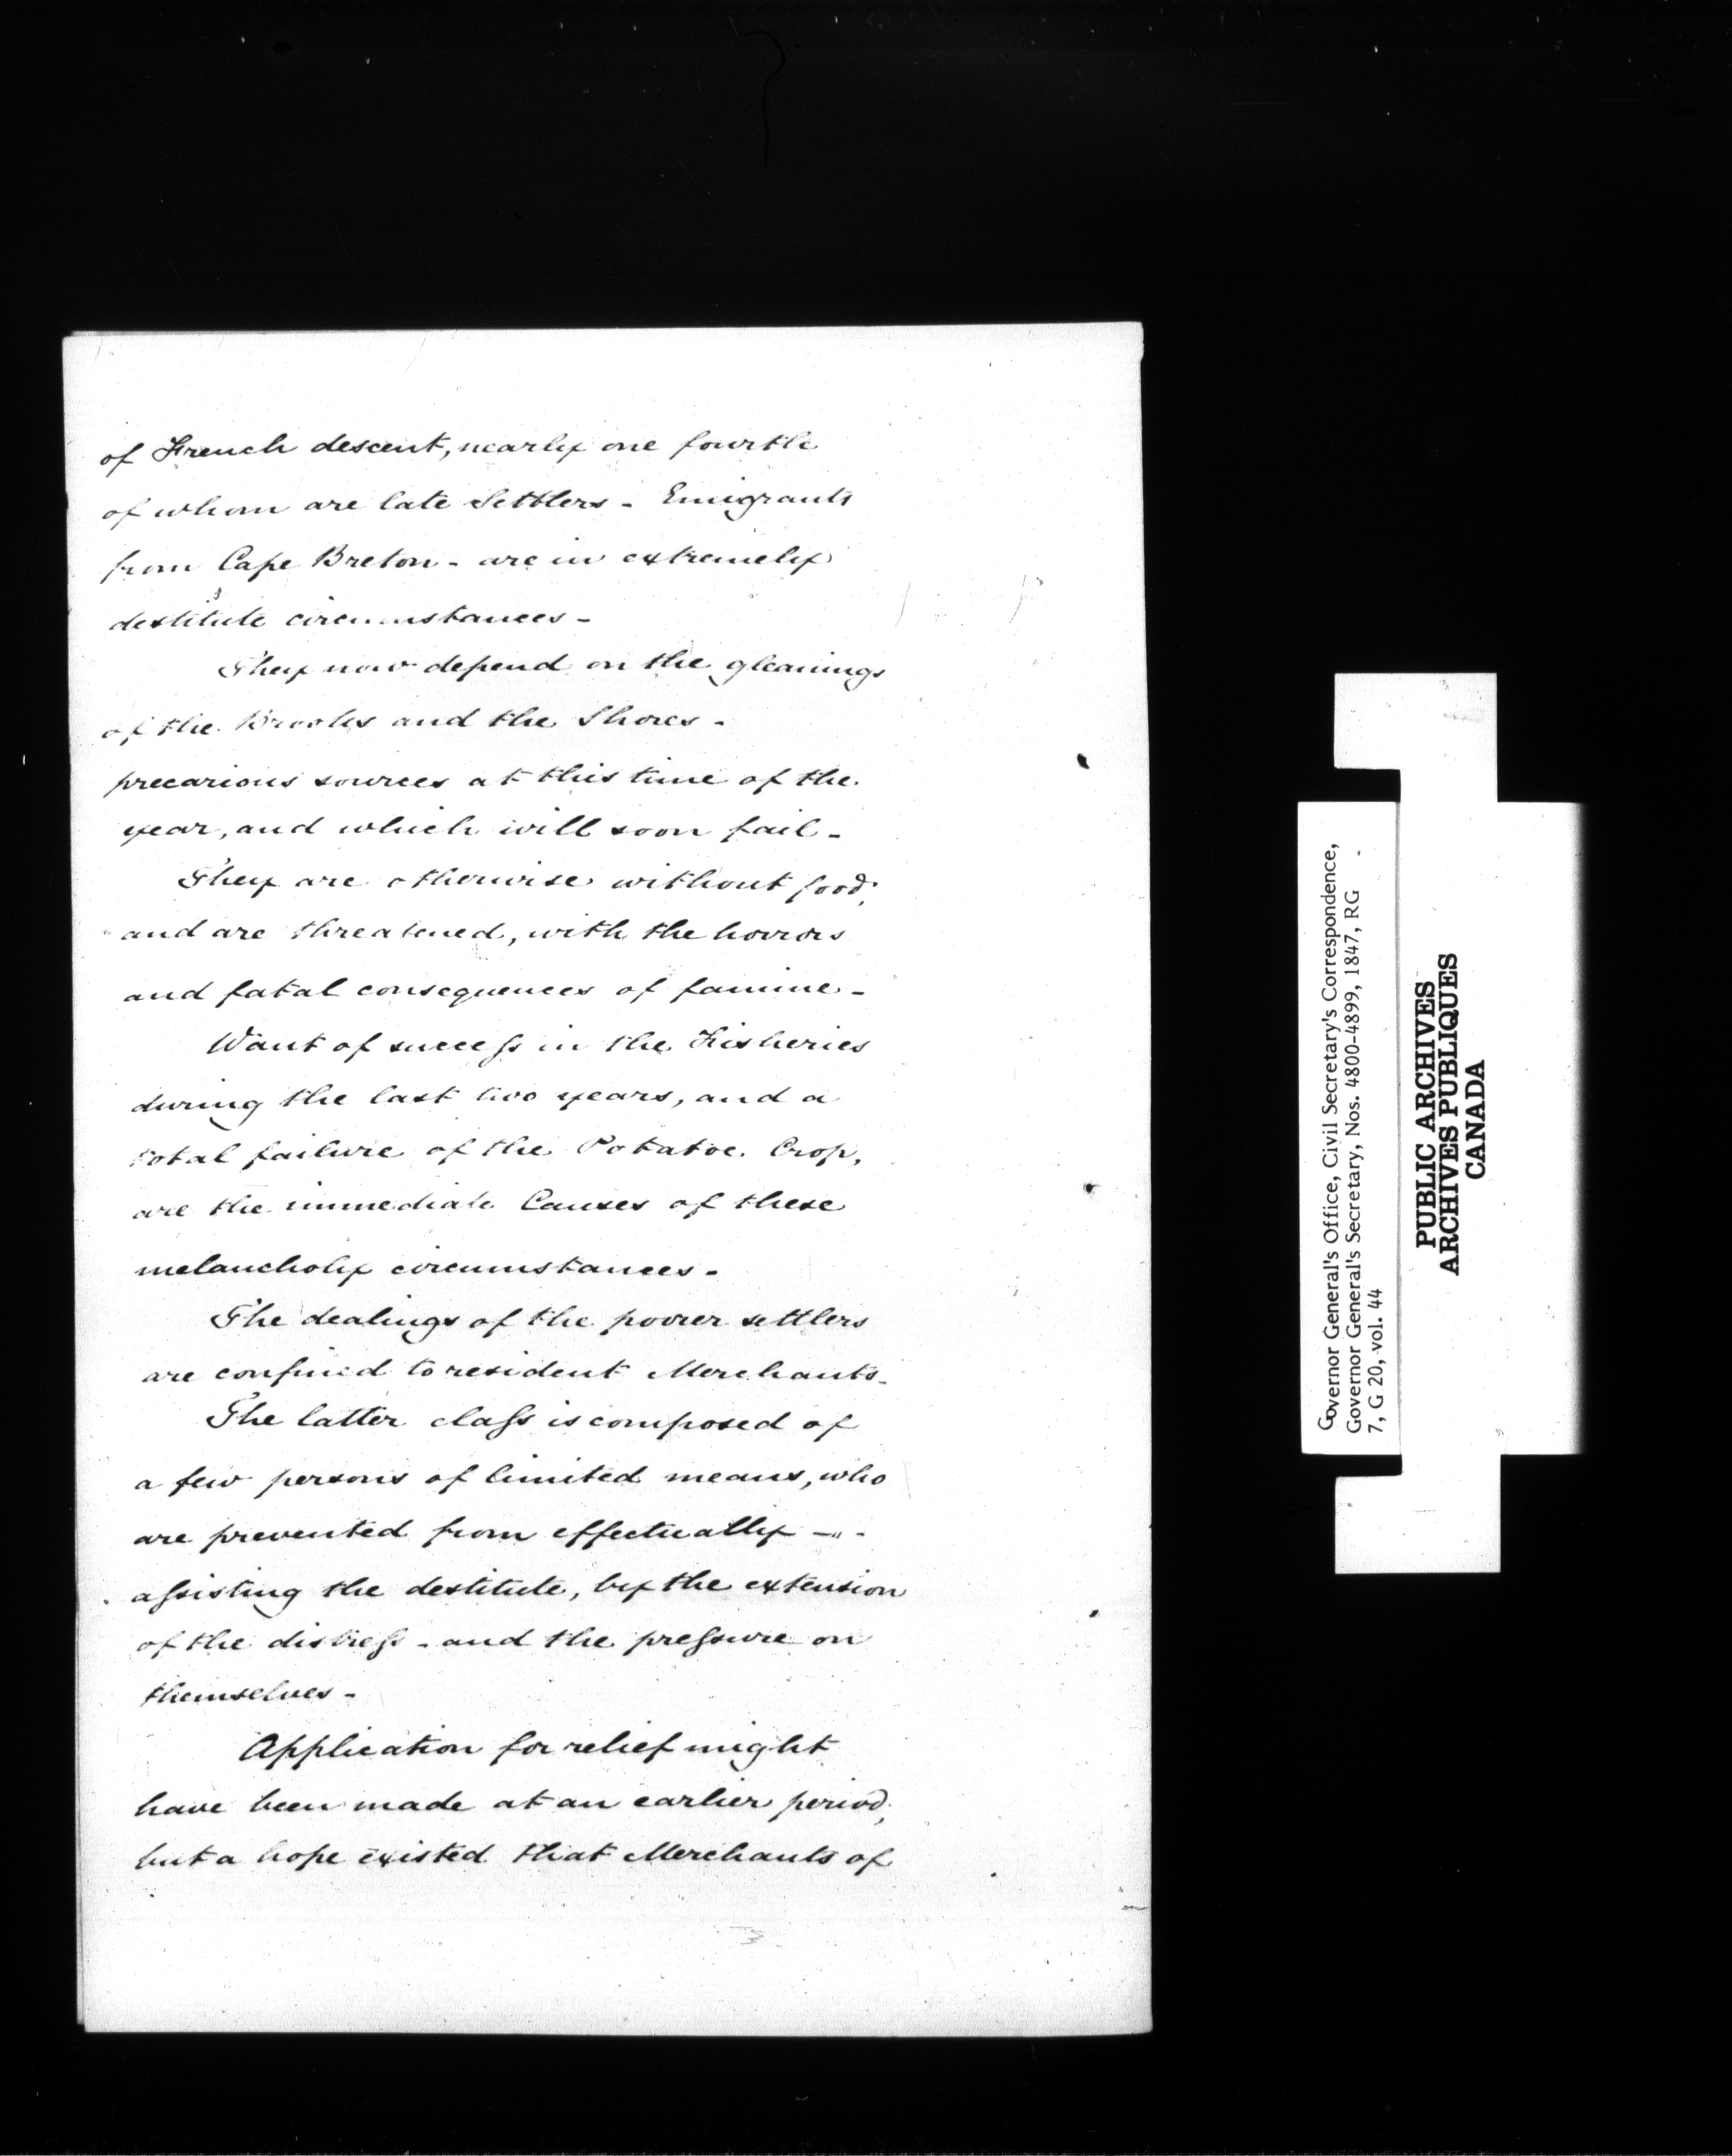 of French descent, nearly one fourth
of whom are late Settlers - Emigrants
from Cape Breton - are in extremely
destitute circumstances -
They now depend on the gleanings
of the Brooks and the Shores -
precarious sources at this time of the
year, and which will soon fail -
They are otherwise without food,
and are threatened, with the horrors
and fatal consequences of famine -
Want of success in the Fisheries
during the last two years, and a
total failure of the Potatoe Crop,
are the immediate Causes of these
melancholy circumstances -
The dealings of the poorer settlers
are confined to resident Merchants -
The latter class is composed of
a few persons of limited means, who
are prevented from effectually -
assisting the destitute, by the extension
of the distress - and the pressure on
themselves -
Application for relief might
have been made at an earlier period,
but a hope existed that Merchants of
Governor General's Office, Civil Secretary's Correspondence,
Governor General's Secretary, Nos. 4800-4899, 1847, RG
7, G 20, vol. 44
PUBLIC ARCHIVES
ARCHIVES PUBLIQUES
CANADA